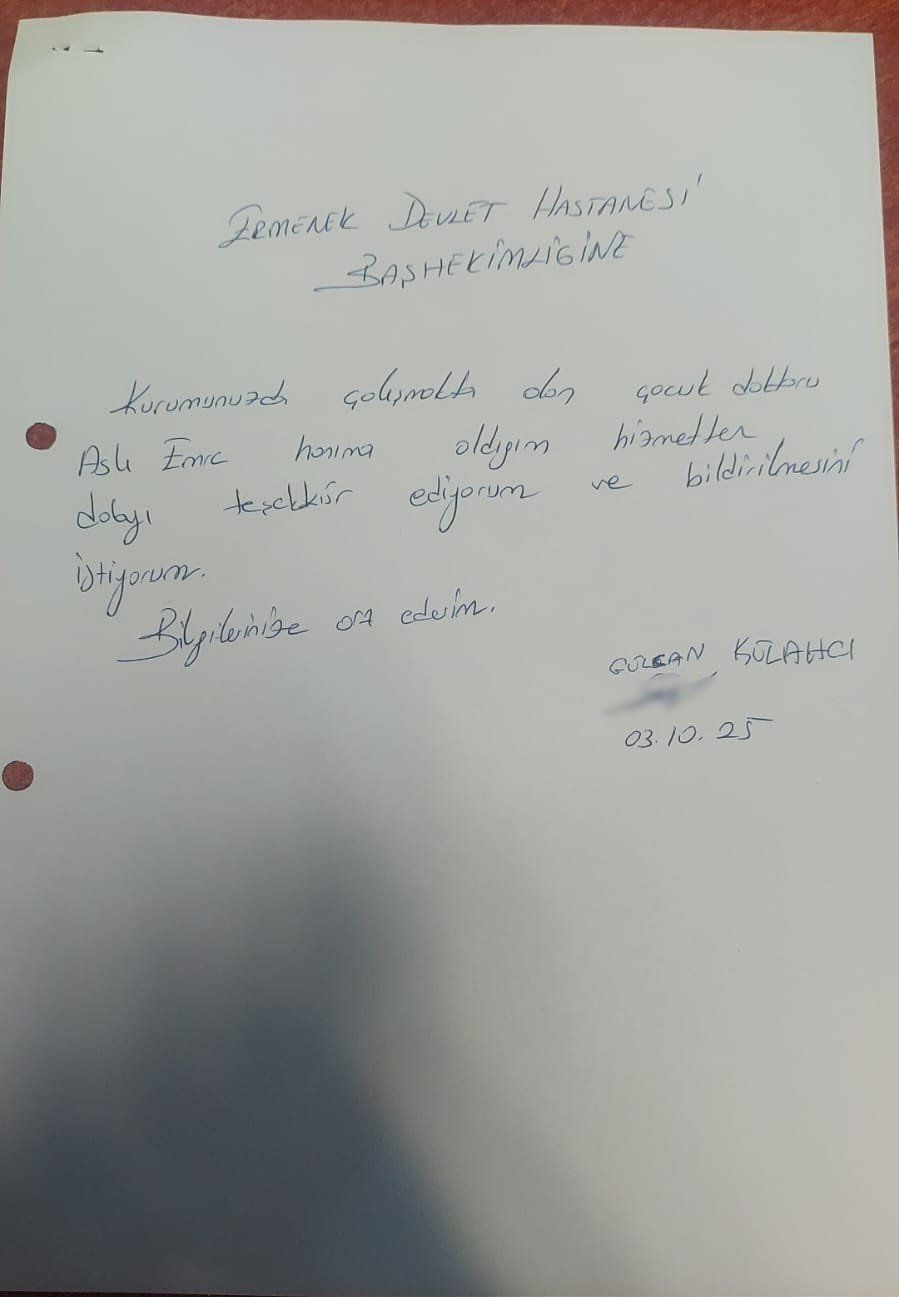 ERMENEK DEVLET HASTANESİ
BAŞHEKİMLİGİNE
Kurumunuzda çalışmakta olan çocuk doktoru
Aslı Emre hanıma aldıgım hizmetten
dolayı teşekkür ediyorum ve bildirilmesini
istiyorum.
Bilgilerinize arz ederim.
GÜLCAN KÜLAHCI
03.10.25